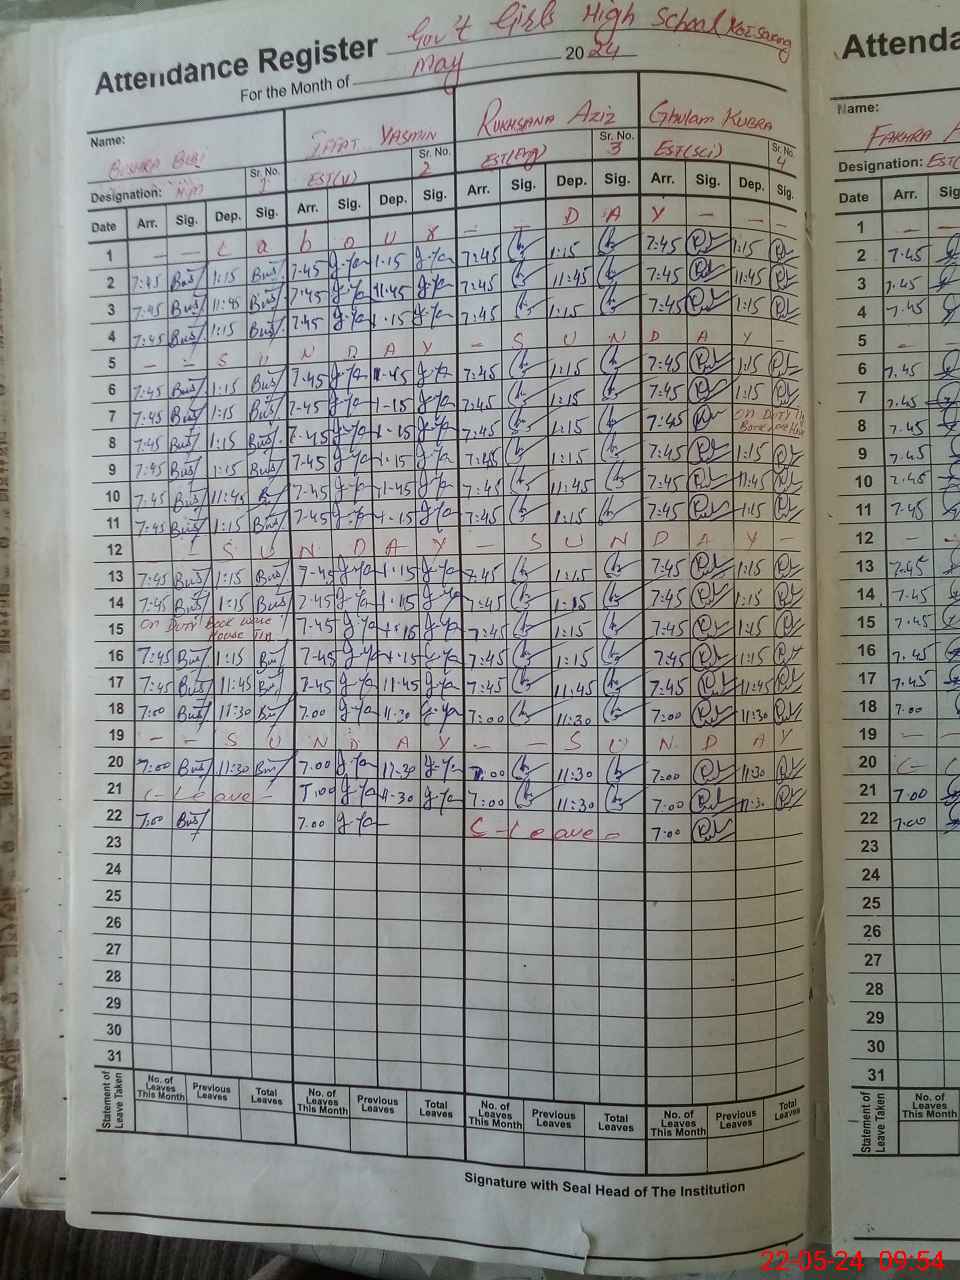 Attendance Register Gov't Girls High School Kot Sarang
For the Month of May 2024
Name: Bushra Bibi | Iffat Yasmin | Rukhsana Aziz | Ghulam Kubra
Designation: H/M Sr. No. 1 | EST(V) Sr. No. 2 | EST(Eng) Sr. No. 3 | EST(Sci) Sr. No. 4
Date Arr. Sig. Dep. Sig. Arr. Sig. Dep. Sig. Arr. Sig. Dep. Sig. Arr. Sig. Dep. Sig.
1 – – L a b o u r – – D A Y – – –
2 7:45 1:15 7-45 1-15 7:45 1:15 7:45 1:15
3 7:45 11:45 7-45 11-45 7:45 11:45 7:45 11:45
4 7:45 1:15 7-45 1-15 7:45 1:15 7:45 1:15
5 – – S U N D A Y – S U N D A Y –
6 7:45 1:15 7-45 7:45 1:15 7:45 1:15
7 7:45 1:15 7-45 1-15 7:45 1:15 7:45 1:15
8 7:45 1:15 7-45 1-15 7:45 1:15 7:45 On Duty
9 7:45 1:15 7-45 1-15 7:45 1:15 7:45 1:15
10 7:45 11:45 7-45 11-45 7:45 11:45 7:45 11:45
11 7:45 1:15 7-45 1-15 7:45 1:15 7:45 1:15
12 – S U N D A Y – S U N D A Y –
13 7:45 1:15 7-45 1-15 7:45 1:15 7:45 1:15
14 7:45 1:15 7-45 1-15 7:45 1:15 7:45 1:15
15 On Duty Book ware House 7-45 1-15 7:45 1:15 7:45 1:15
16 7:45 1:15 7-45 1-15 7:45 1:15 7:45 1:15
17 7:45 11:45 7-45 11-45 7:45 11:45 7:45 11:45
18 7:00 11:30 7.00 11-30 7:00 11:30 7:00 11:30
19 – – S U N D A Y – – S U N D A Y
20 7:00 11:30 7.00 11-30 7:00 11:30 7:00 11:30
21 C-Leave 7.00 11-30 7:00 11:30 7:00 11:30
22 7:00 7.00 C-Leave 7:00
23
24
25
26
27
28
29
30
31
Statement of Leave Taken No. of Leaves This Month Previous Leaves Total Leaves No. of Leaves This Month Previous Leaves Total Leaves No. of Leaves This Month Previous Leaves Total Leaves No. of Leaves This Month Previous Leaves Total Leaves
Signature with Seal Head of The Institution
Attenda
Name: Fakhra
Designation: EST(
Date Arr. Sig
1 – –
2 7.45
3 7.45
4 7.45
5 – –
6 7.45
7 7.45
8 7.45
9 7.45
10 7.45
11 7.45
12 – –
13 7.45
14 7.45
15 7.45
16 7.45
17 7.45
18 7.00
19 – –
20
21 7.00
22 7.00
23
24
25
26
27
28
29
30
31
Statement of Leave Taken No. of Leaves This Month
22-05-24 09:54